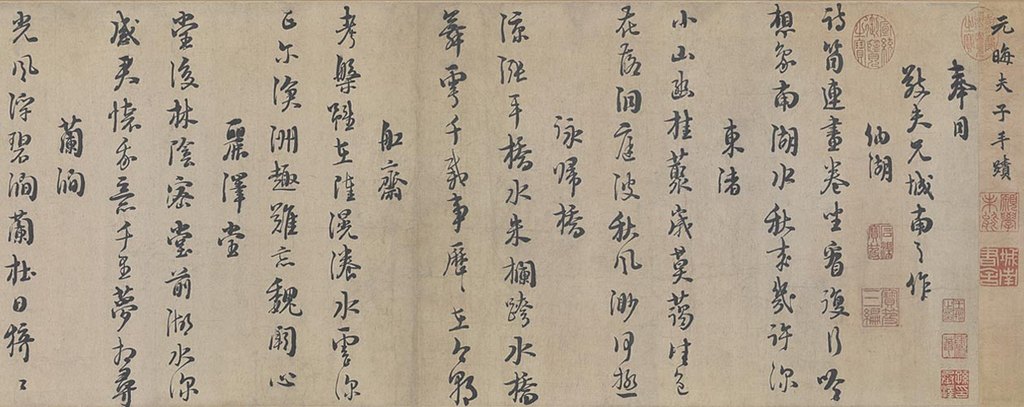 元晦夫子手蹟
奉同
敬夫兄城南之作
仙湖
詩筒連畫卷坐看復行吟
想象南湖水秋來幾許深
東渚
小山幽桂叢歲莫藹佳色
花落洞庭波秋風渺何極
詠歸橋
綠漲平橋水朱欄跨水橋
舞雩千載事歷歷在今朝
船齋
考槃雖在陸滉瀁水雲深
正尔滄洲趣難忘魏闕心
麗澤堂
堂後林陰密堂前湖水深
感君懷我意千里夢相尋
蘭澗
光風浮碧澗蘭杜日猗猗